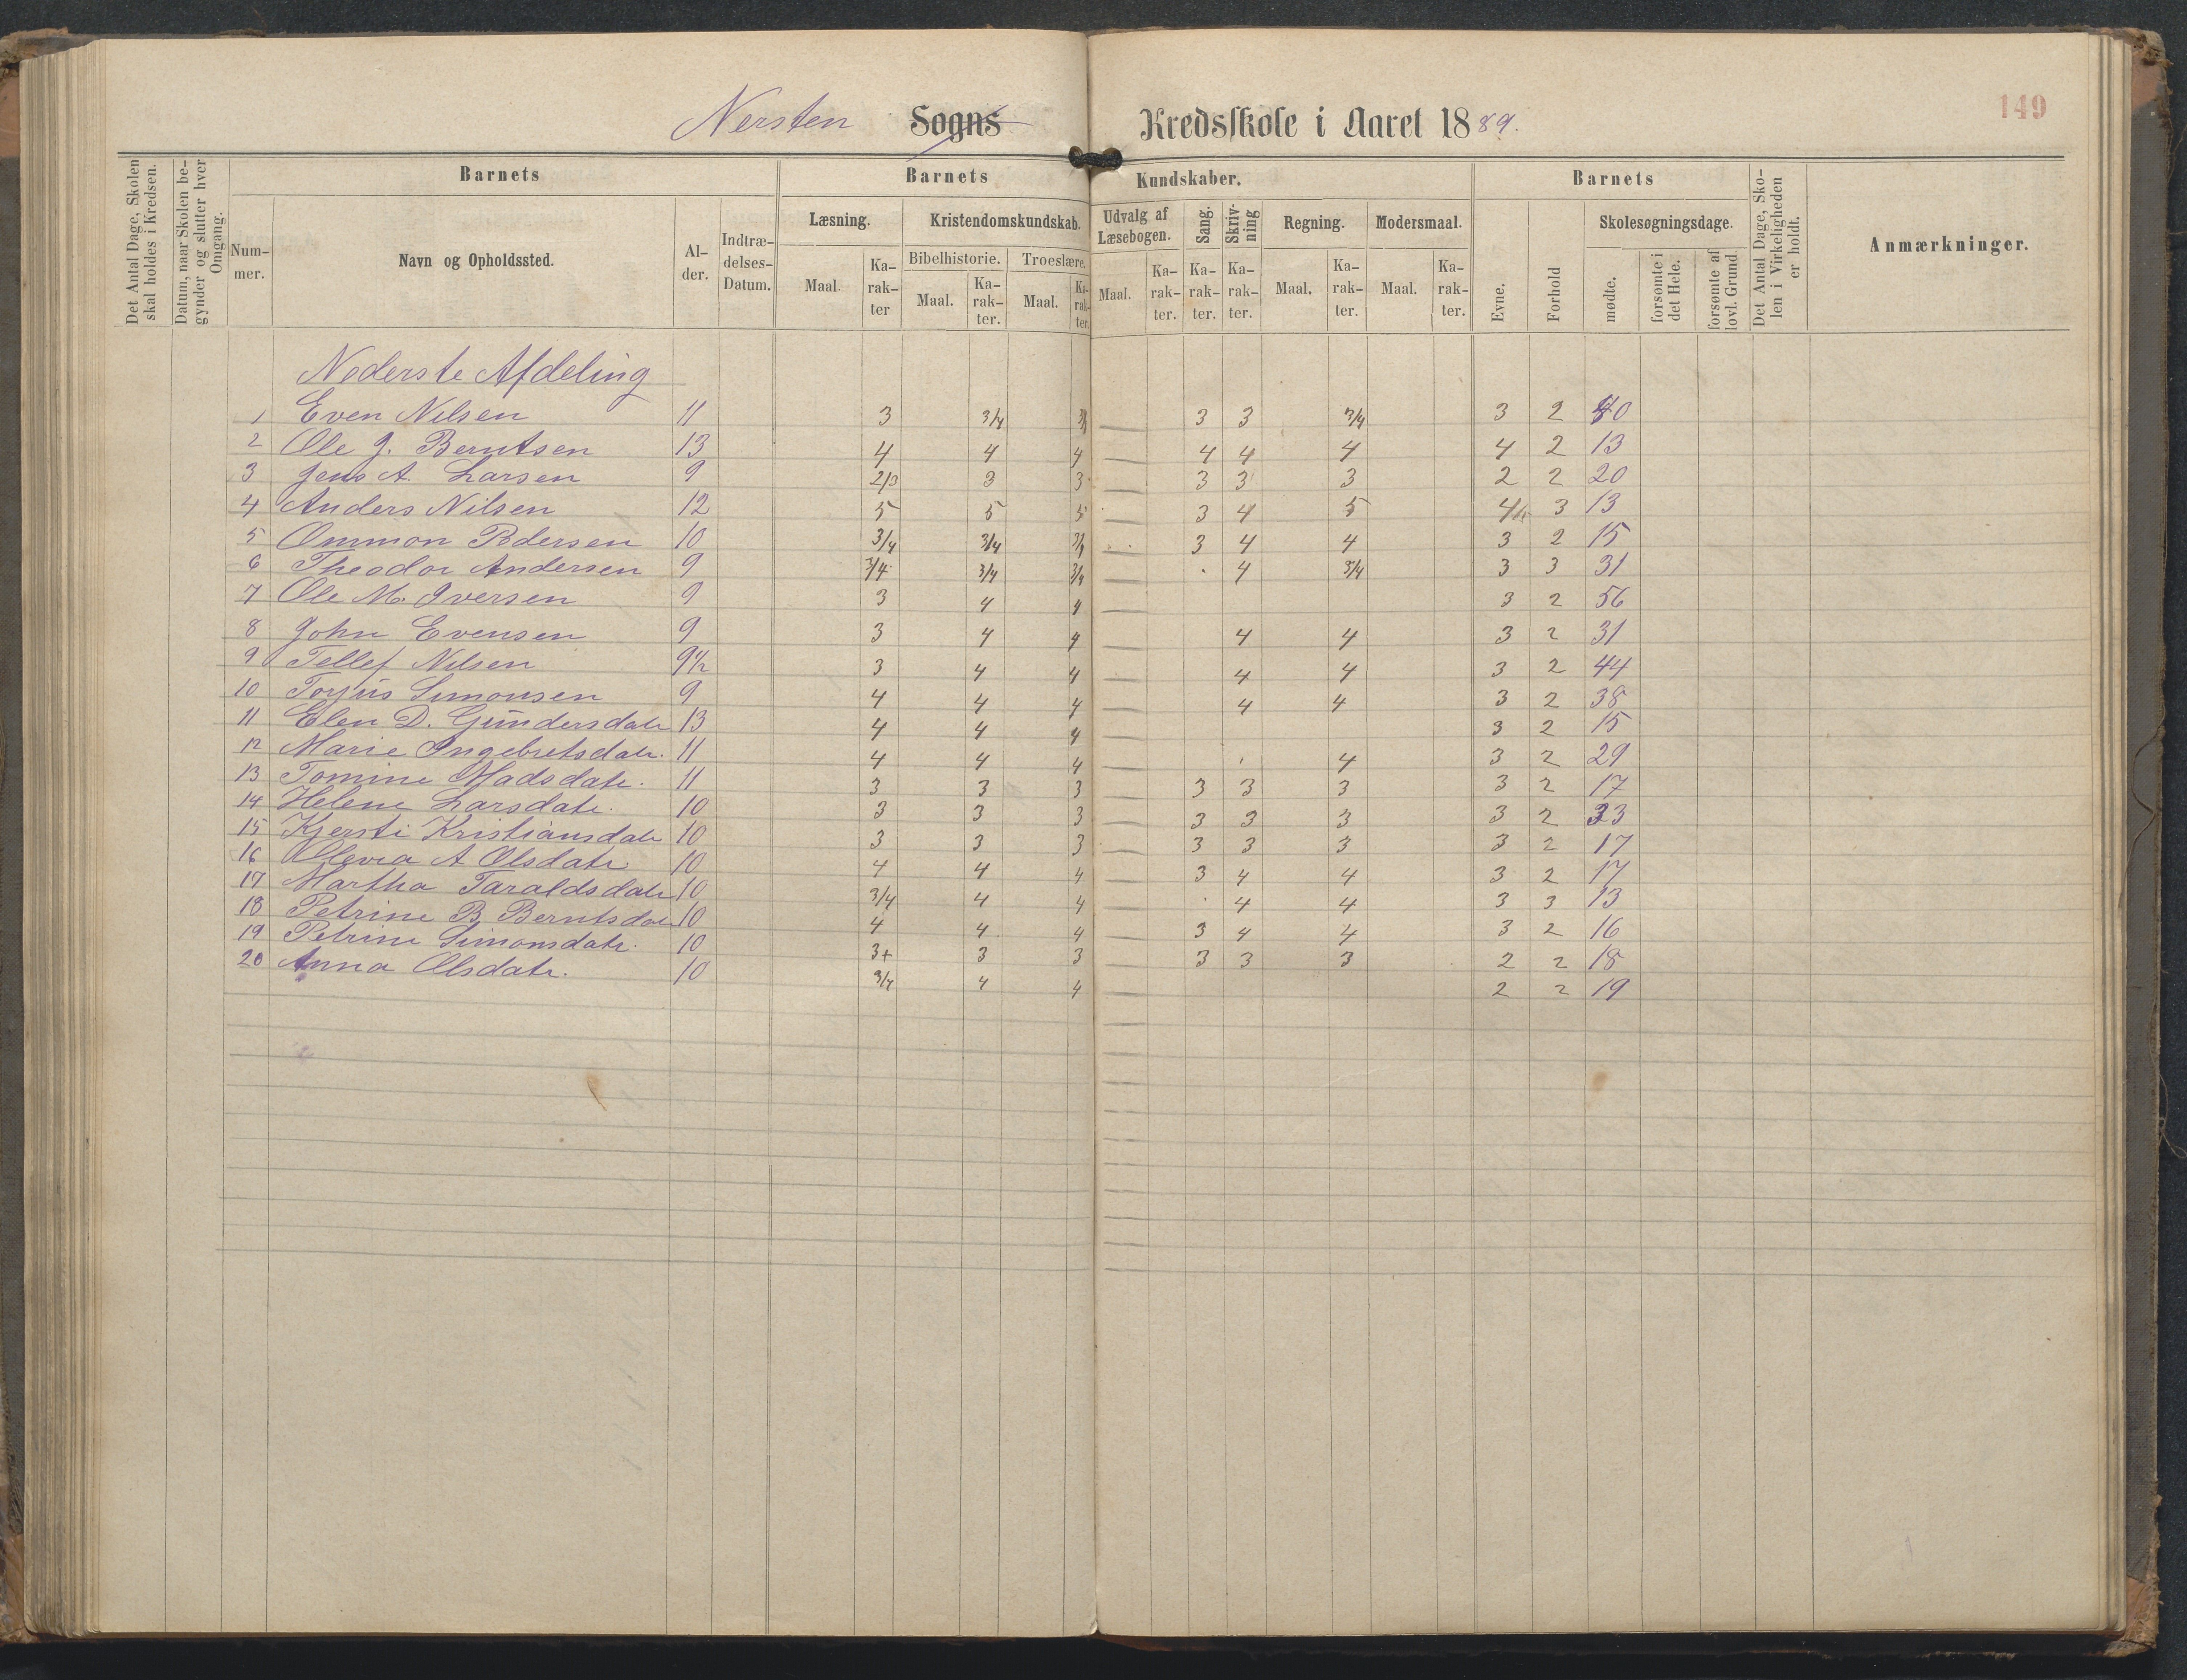 149
Nersten Sogns Kredsskole i Aaret 1889.
Det Antal Dage, Skolen skal holdes i Kredsen.
Datum, naar Skolen begynder og slutter hver Omgang.
Barnets
Barnets Kundskaber.
Barnets
Det Antal Dage, Skolen i Virkeligheden er holdt.
Anmærkninger.
Nummer.
Navn og Opholdssted.
Alder.
Indtrædelses-Datum.
Læsning.
Kristendomskundskab.
Udvalg af Læsebogen.
Sang.
Skrivning
Regning.
Modersmaal.
Evne.
Forhold
Skolesøgningsdage.
Bibelhistorie.
Troeslære.
Maal. Karakter Maal. Karakter. Maal. Karakter. Maal. Karakter. Karakter. Karakter. Maal. Karakter. Maal. Karakter.
mødte.
forsømte i det Hele.
forsømte af lovl. Grund.
Nederste Afdeling
1 Even Nilsen 11 3 3/4 3/4 3 3 3/4 3 2 40
2 Ole J. Berntsen 13 4 4 4 4 4 4 4 2 13
3 Jens A. Larsen 9 2/3 3 3 3 3 3 2 2 20
4 Anders Nilsen 12 5 5 5 3 4 5 4 3 13
5 Ommon Pedersen 10 3/4 3/4 3/4 3 4 4 3 2 15
6 Theodor Andersen 9 3/4 3/4 3/4 4 3/4 3 3 31
7 Ole M. Iversen 9 3 4 4 3 2 56
8 John Evensen 9 3 4 4 4 4 3 2 31
9 Tellef Nilsen 9½ 3 4 4 4 4 3 2 44
10 Torjus Simonsen 9 4 4 4 4 4 3 2 38
11 Elen D. Gundersdatr 13 4 4 4 3 2 15
12 Marie Ingebretsdatr. 11 4 4 4 4 3 2 29
13 Tomine Madsdatr. 11 3 3 3 3 3 3 3 2 17
14 Helene Larsdatr. 10 3 3 3 3 3 3 3 2 33
15 Kjersti Kristiansdatr 10 3 3 3 3 3 3 3 2 17
16 Olevia A Olsdatr. 10 4 4 4 3 4 4 3 2 17
17 Martha Taraldsdatr 10 3/4 4 4 4 4 3 3 13
18 Petrine B Berntsdatr 10 4 4 4 3 4 4 3 2 16
19 Petrine Simonsdatr. 10 3+ 3 3 3 3 3 2 2 18
20 Anna Olsdatr. 10 3/4 4 4 2 2 19